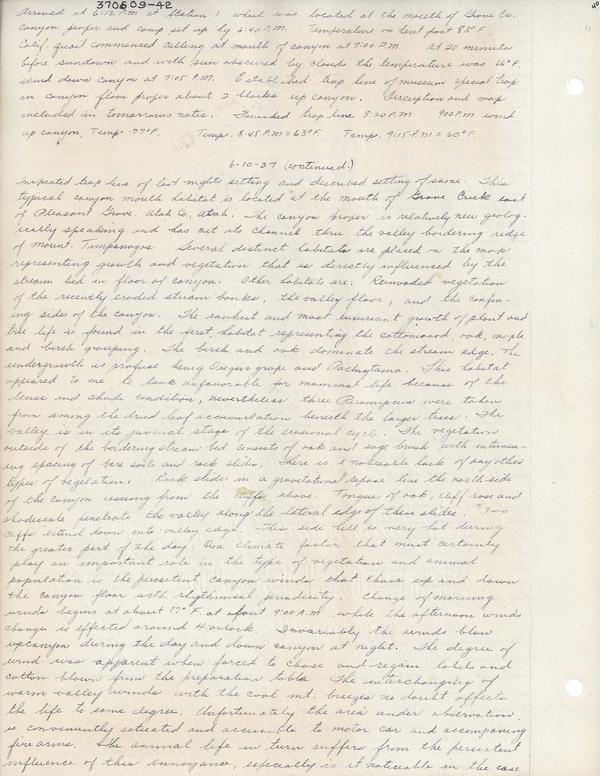 370609-42
Arrived at 6:12 P.M. at Station 1 which was located at the mouth of Grove Cr.
Canyon proper and camp set up by 6:40 P.M. Temperature on tent post 83° F.
Calif. quail commenced calling at mouth of canyon at 7:00 P.M. At 20 minutes
before sundown and with sun obscured by clouds the temperature was 66° F.
wind down canyon at 7:05 P.M. Established trap line of museum special trap
in canyon floor proper about 2 blocks up canyon. Description and map
included in tomorrows notes. Finished trap line 8:20 P.M. 9:00 P.M. wind
up canyon, Temp. 77° F. Temp. 8:45 P.M. = 63° F. Temp. 9:15 P.M. = 60° F.
6-10-37 (continued.)
Inspected trap line of last nights setting and described setting of same. This
typical canyon mouth habitat is located at the mouth of Grove Creek east
of Pleasant Grove, Utah Co, Utah. The canyon proper is relatively new geolog-
ically speaking and has cut its channel thru the valley bordering ridge
of Mount. Timpanogos. Several distinct habitats are placed on the map
representing growth and vegetation that is directly influenced by the
stream bed in floor of canyon. Other habitats are: Reinvaded vegetation
of the recently eroded stream banks, the valley floor, and the confin-
ing sides of the canyon. The rankest and most luxuriant growth of plant and
tree life is found in the first habitat representing the cottonwood, oak, maple
and birch grouping. The birch and oak dominate the stream edge. The
undergrowth is profuse being Oregon grape and Pachystima. This habitat
appeared to me to look unfavorable for mammal life because of the
dense and shade condition, nevertheless three Peromyscus were taken
from among the dried leaf accumulation beneath the larger trees. The
valley is in its juvenal stage of the seasonal cycle. The vegetation
outside of the bordering stream bed consists of oak and sage brush with interven-
ing spacing of bare soils and rock slides. There is a noticeable lack of any other
types of vegetation. Rock slides in a gravitational repose line the north side
of the canyon issuing from the cliffs above. Tongues of oak, cliff rose and
shadscale penetrate the valley along the lateral edge of these slides. Two
cliffs extend down into valley edge. This side hill is very hot during
the greater part of the day. One climatic factor that must certainly
play an important role in the type of vegetation and animal
population is the persistent canyon winds that chase up and down
the canyon floor with rhythmical periodicity. Change of morning
winds begins at about 77° F. at about 9:00 A.M. while the afternoon winds
change is effected around 4 oclock. Invariably the winds blow
up canyon during the day and down canyon at night. The degree of
wind was apparent when forced to chase and regain labels and
cotton blown from the preparation table. The interchanging of
warm valley winds with the cool mt. breezes no doubt affects
the life to some degree. Unfortunately the area under observation
is conveniently situated and accessible to motor car and accompaning
fire arms. The animal life in turn suffers from the persistent
influence of this annoyance, especially is it noticeable in the case